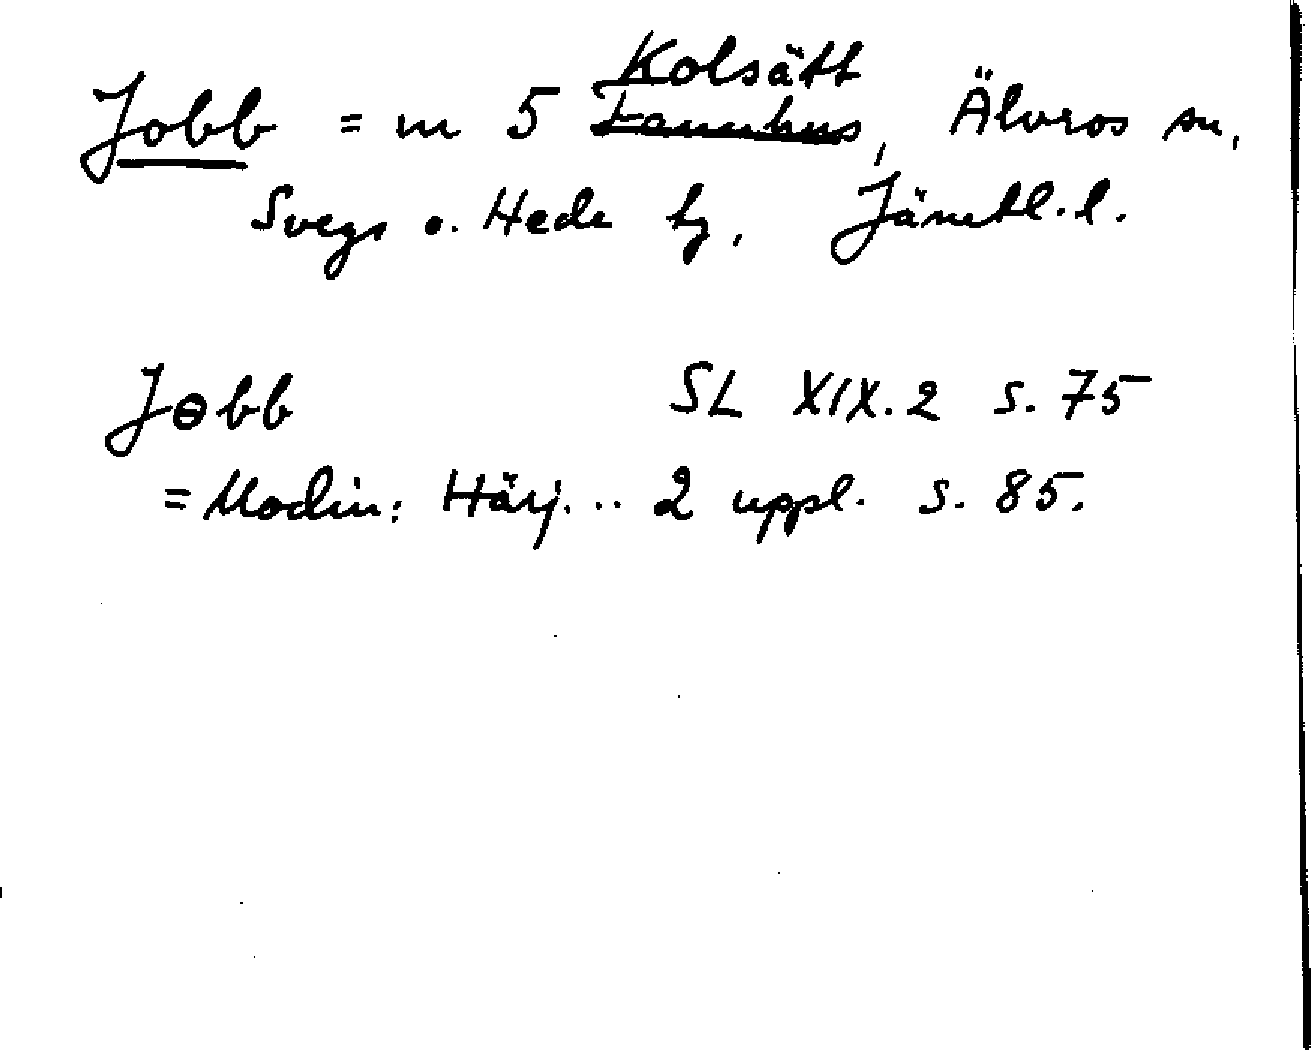 Kolsätt
Jobb = m 5 Fannhus, Älvros sn,
Svegs o. Hede tg, Jämtl. l.
Jobb SL XIX.2 s. 75
= Modin: Härj... 2 uppl. s. 85.